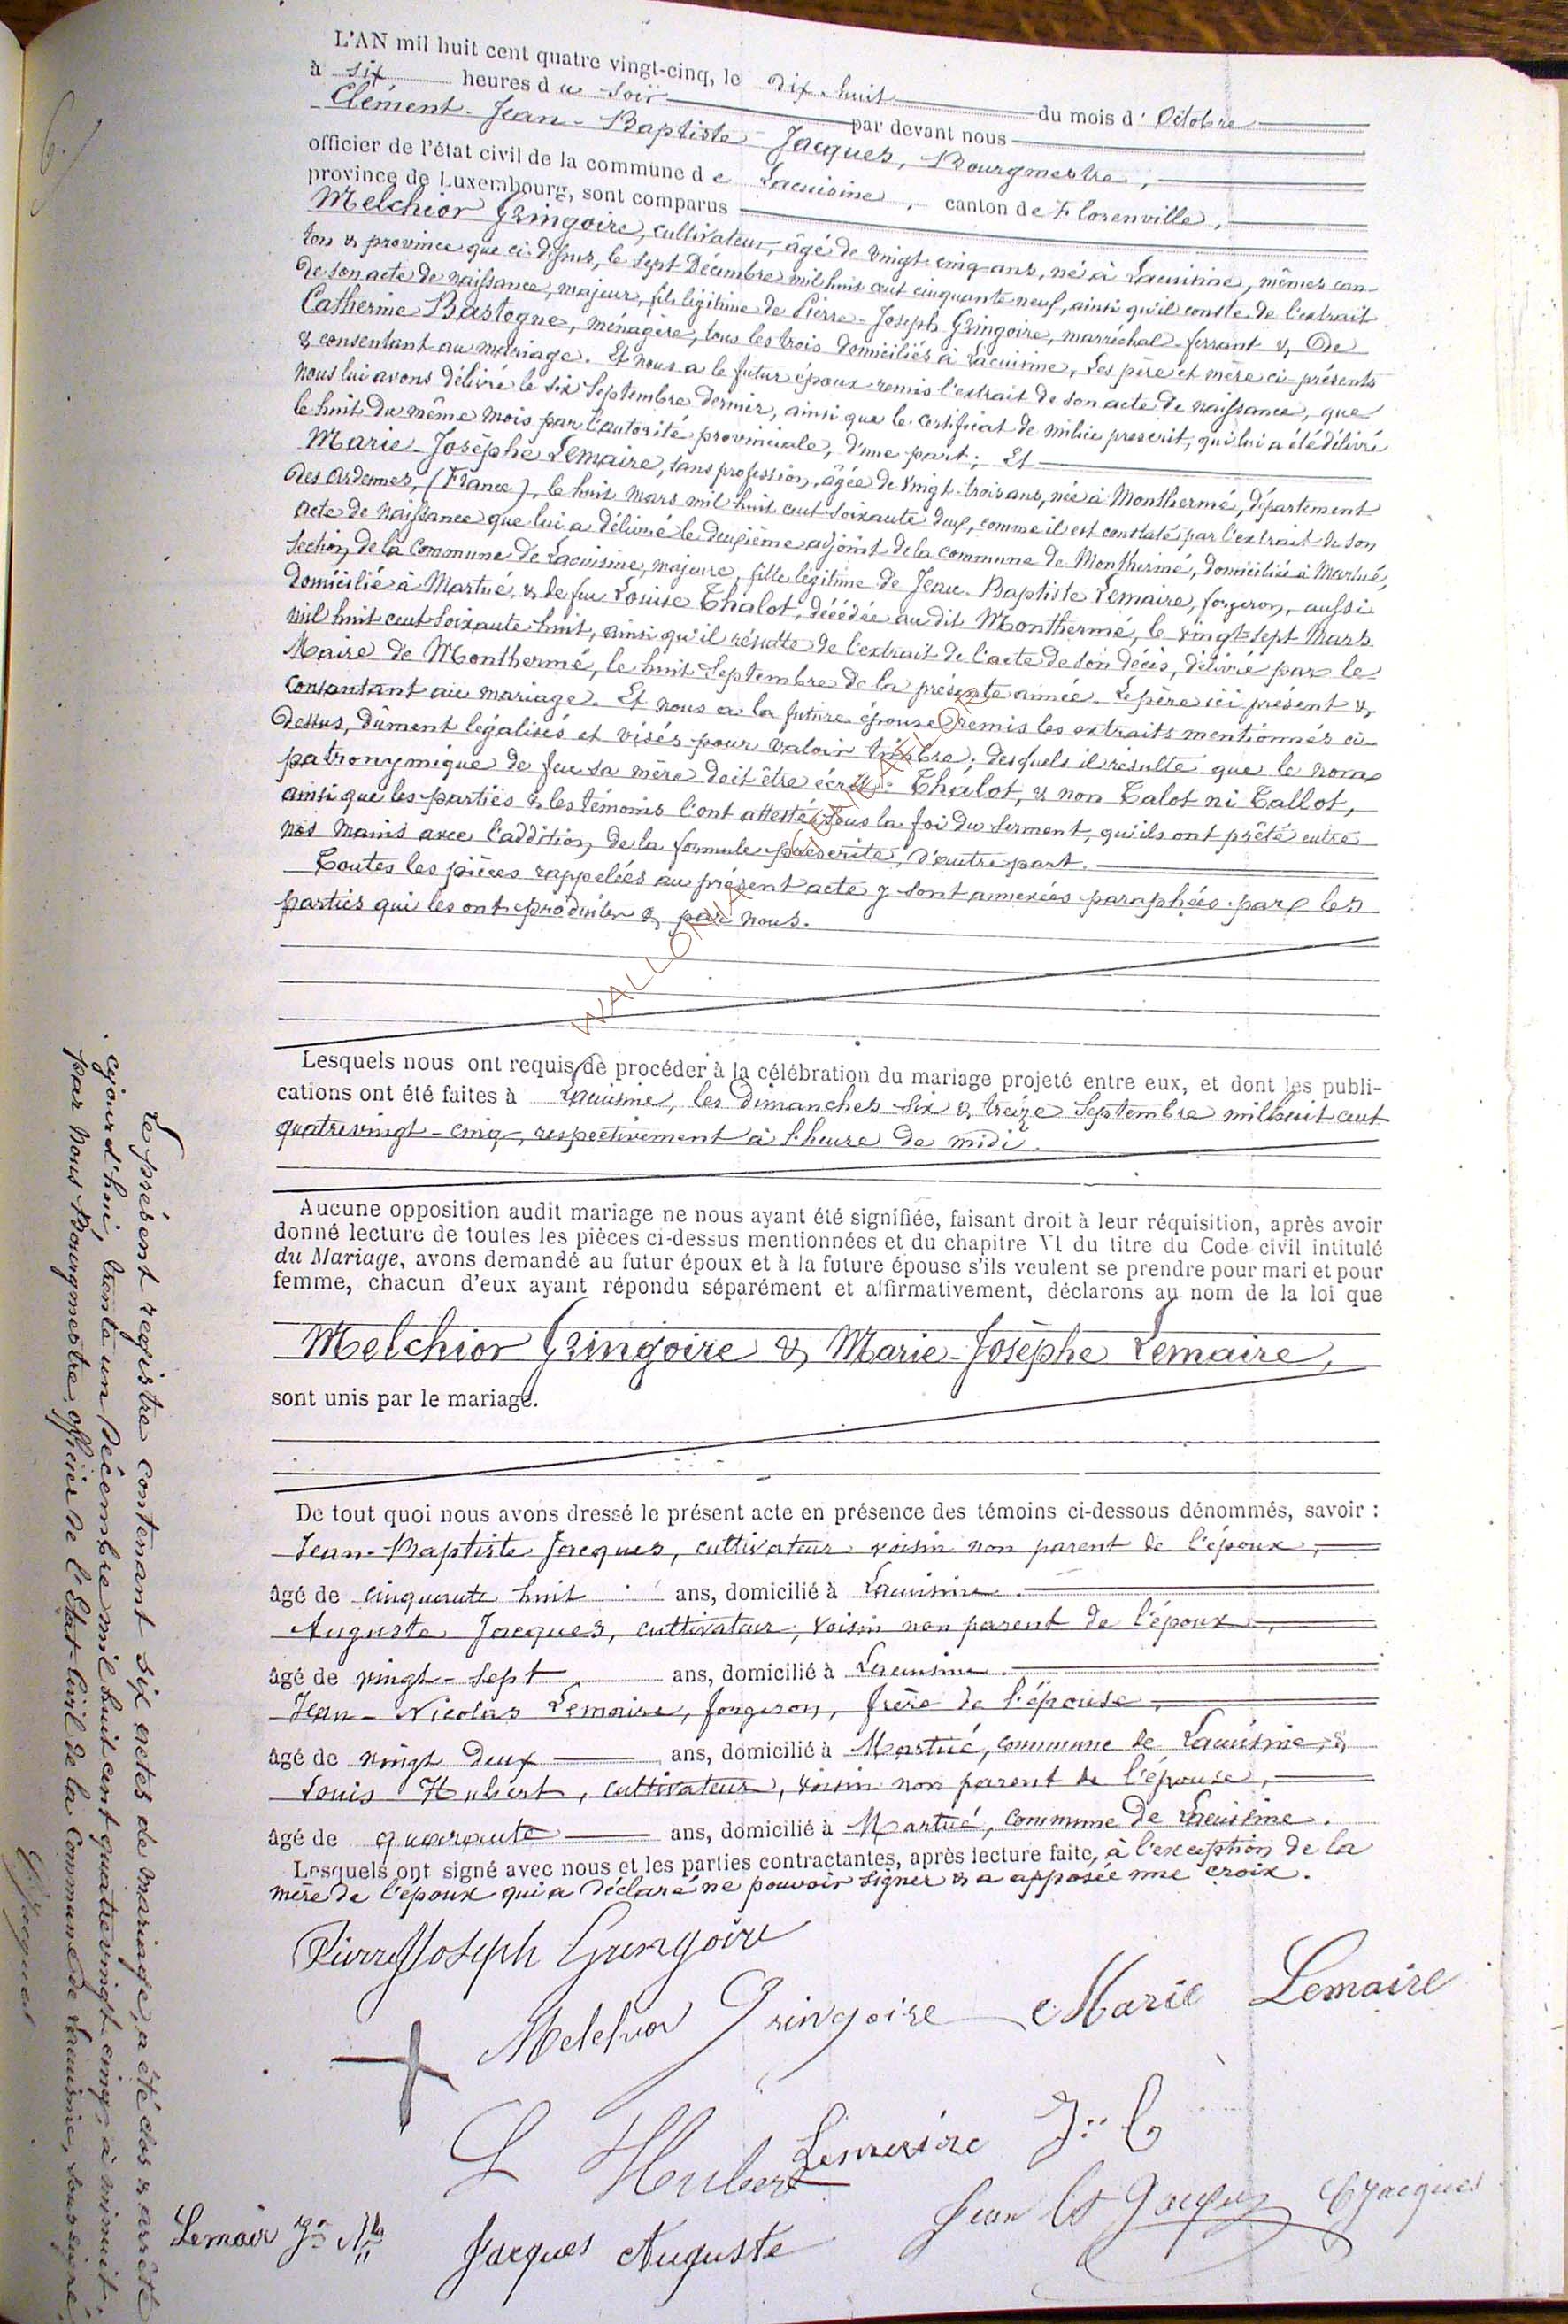 L'AN mil huit cent quatre vingt-cinq, le dix-huit du mois d'Octobre
à six heures du soir par devant nous
Clément-Jean-Baptiste Jacques, Bourgmestre,
officier de l'état civil de la commune de Lacuisine, canton de Florenville,
province de Luxembourg, sont comparus
Melchior Gringoire, cultivateur, âgé de vingt-cinq ans, né à Lacuisine, mêmes can-
ton & province que ci-dessus, le sept Décembre mil huit cent cinquante neuf, ainsi qu'il conste de l'extrait
de son acte de naissance, majeur, fils légitime de Pierre-Joseph Gringoire, marréchal-ferrant &, de
Catherine Bastogne, ménagère, tous les trois domiciliés à Lacuisine, Les père et mère ci-présents
& consentant au mariage. Et nous a le futur époux remis l'extrait de son acte de naissance, que
nous lui avons délivré le six Septembre dernier, ainsi que le certificat de milice prescrit, qui lui a été délivré
le huit du même mois par l'autorité provinciale, d'une part; Et
Marie-Josèphe Lemaire, sans profession, âgée de vingt-trois ans, née à Monthermé, département
des Ardennes, (France), le huit Mars mil huit cent soixante deux, comme il est constaté par l'extrait de son
acte de naissance que lui a délivré le deuxième adjoint de la commune de Monthermé, domiciliée à Martué,
section de la Commune de Lacuisine, majeure, fille légitime de Jean-Baptiste Lemaire, forgeron, aussi
domicilié à Martué, & de feu Louise Thalot, décédée au dit Monthermé, le vingt-sept Mars
mil huit cent soixante huit, ainsi qu'il résulte de l'extrait de l'acte de son décès, délivré par le
Maire de Monthermé, le huit Septembre de la présente année. Le père ici présent &
consentant au mariage. Et nous a la future épouse remis les extraits mentionnés ci-
dessus, dûment légalisés et visés pour valoir timbre; desquels il résulte que le nom
patronymique de feu sa mère doit être écrit: Thalot, & non Talot ni Tallot,
ainsi que les parties & les témoins l'ont attesté sous la foi du serment, qu'ils ont prêté entre
nos mains avec l'addition de la formule prescrite, d'autre part.
Toutes les pièces rappelées au présent acte y sont annexées paraphées par les
parties qui les ont produites & par nous.
WALLONIA
Lesquels nous ont requis de procéder à la célébration du mariage projeté entre eux, et dont les publi-
cations ont été faites à Lacuisine, les dimanches six & treize Septembre mil huit cent
quatrevingt-cinq, respectivement à l'heure de midi.
Aucune opposition audit mariage ne nous ayant été signifiée, faisant droit à leur réquisition, après avoir
donné lecture de toutes les pièces ci-dessus mentionnées et du chapitre VI du titre du Code civil intitulé
du Mariage, avons demandé au futur époux et à la future épouse s'ils veulent se prendre pour mari et pour
femme, chacun d'eux ayant répondu séparément et affirmativement, déclarons au nom de la loi que
Melchior Gringoire & Marie-Josèphe Lemaire,
sont unis par le mariage.
De tout quoi nous avons dressé le présent acte en présence des témoins ci-dessous dénommés, savoir :
Jean-Baptiste Jacques, cultivateur voisin non parent de l'époux,
âgé de cinquante huit ans, domicilié à Lacuisine.
Auguste Jacques, cultivateur, voisin non parent de l'époux,
âgé de vingt-sept ans, domicilié à Lacuisine.
Jean-Nicolas Lemaire, forgeron, frère de l'épouse,
âgé de vingt deux ans, domicilié à Martué, commune de Lacuisine, &
Louis Hubert, cultivateur, voisin non parent de l'épouse,
âgé de quarante ans, domicilié à Martué, commune de Lacuisine.
Lesquels ont signé avec nous et les parties contractantes, après lecture faite, à l'exception de la
mère de l'époux qui a déclaré ne pouvoir signer & a apposée une croix.
Pierre Joseph Gringoire
Melchior Gringoire Marie Lemaire
L Hubert Lemaire J: B
Jean Bt Jacques CJacques
Lemair Jn Nas Jacques Auguste
Le présent registre contenant six actes de mariage, a été clos & arrêté
cejourd'hui, trente un Décembre mil huit cent quatrevingt cinq, à minuit,
par Nous Bourgmestre, officier de l'Etat-Civil de la Commune de Lacuisine, soussigné.
CJacques